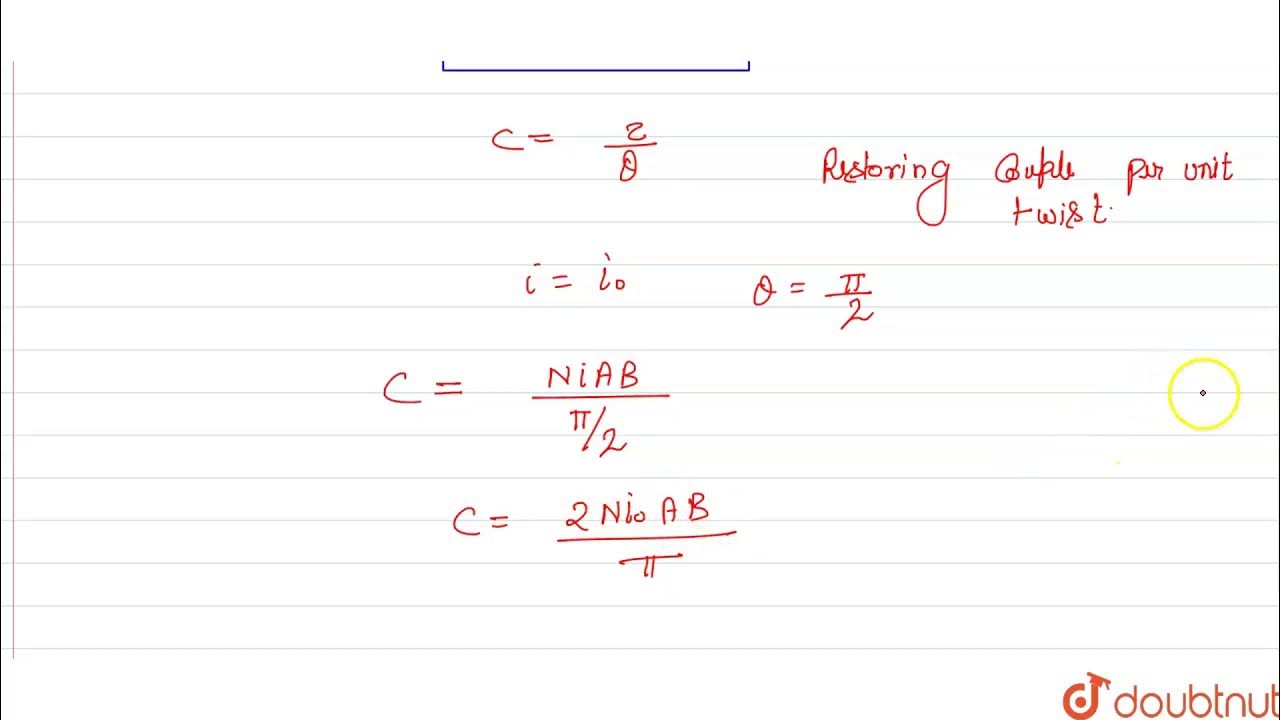 C = τ/θ
Restoring Couple per unit
twist.
i = i₀ θ = π/2
C = NiAB/(π/2)
C = 2Ni₀AB/π
doubtnut